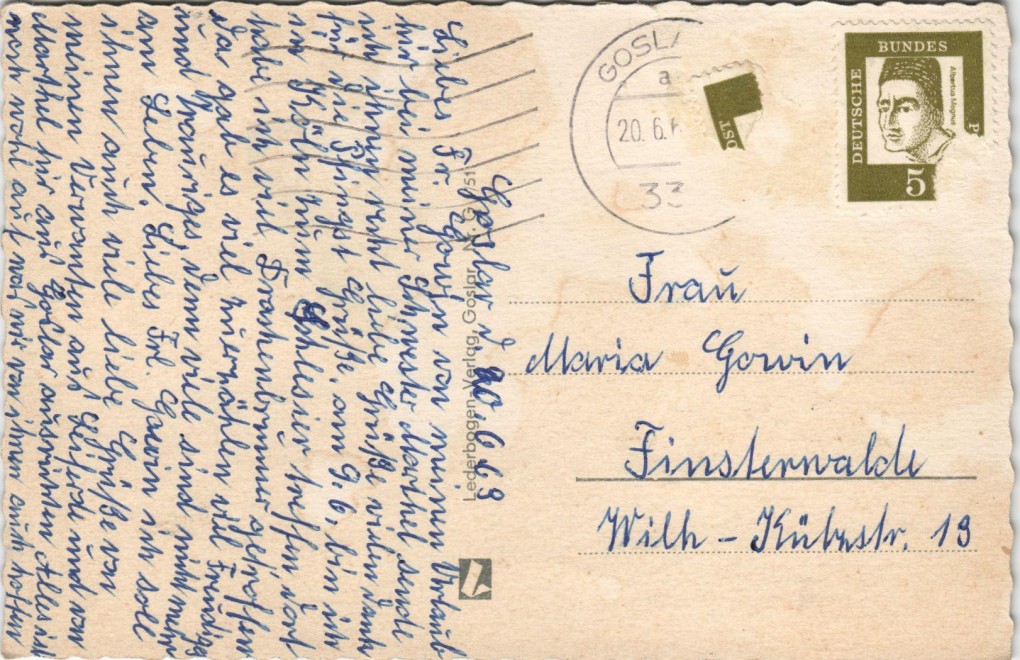 Goslar d. 20.6.63
Liebes Frl Gowin von meinem Urlaub
hir bei meiner Schwester Marthel sende
ich ihnen recht liebe Grüße vielen Dank
für die Pfingst Grüße. am 9.6. bin ich
in Köln zum Schlesier treffen dort
habe ich viel Trachenbrunner getroffen
Da gab es viel zu erzählen viel Freudiges
und trauriges, denn viele sind nicht mehr
am Leben. Liebes Frl. Gowin ich soll
ihnen auch viele liebe Grüße von
meinen Verwanten aus Leiferde und von
Marthel hir aus Goslar ausrichten Alles ist
noch wohl auf was wir von ihnen auch hoffen
Lederbogen-Verlag, Goslar Nr. G 751
GOSLA
a
20. 6. 6
33
OST
DEUTSCHE
BUNDES
P
Albertus Magnus
5
Frau
Maria Gowin
Finsterwalde
Wilh-Külzstr. 19